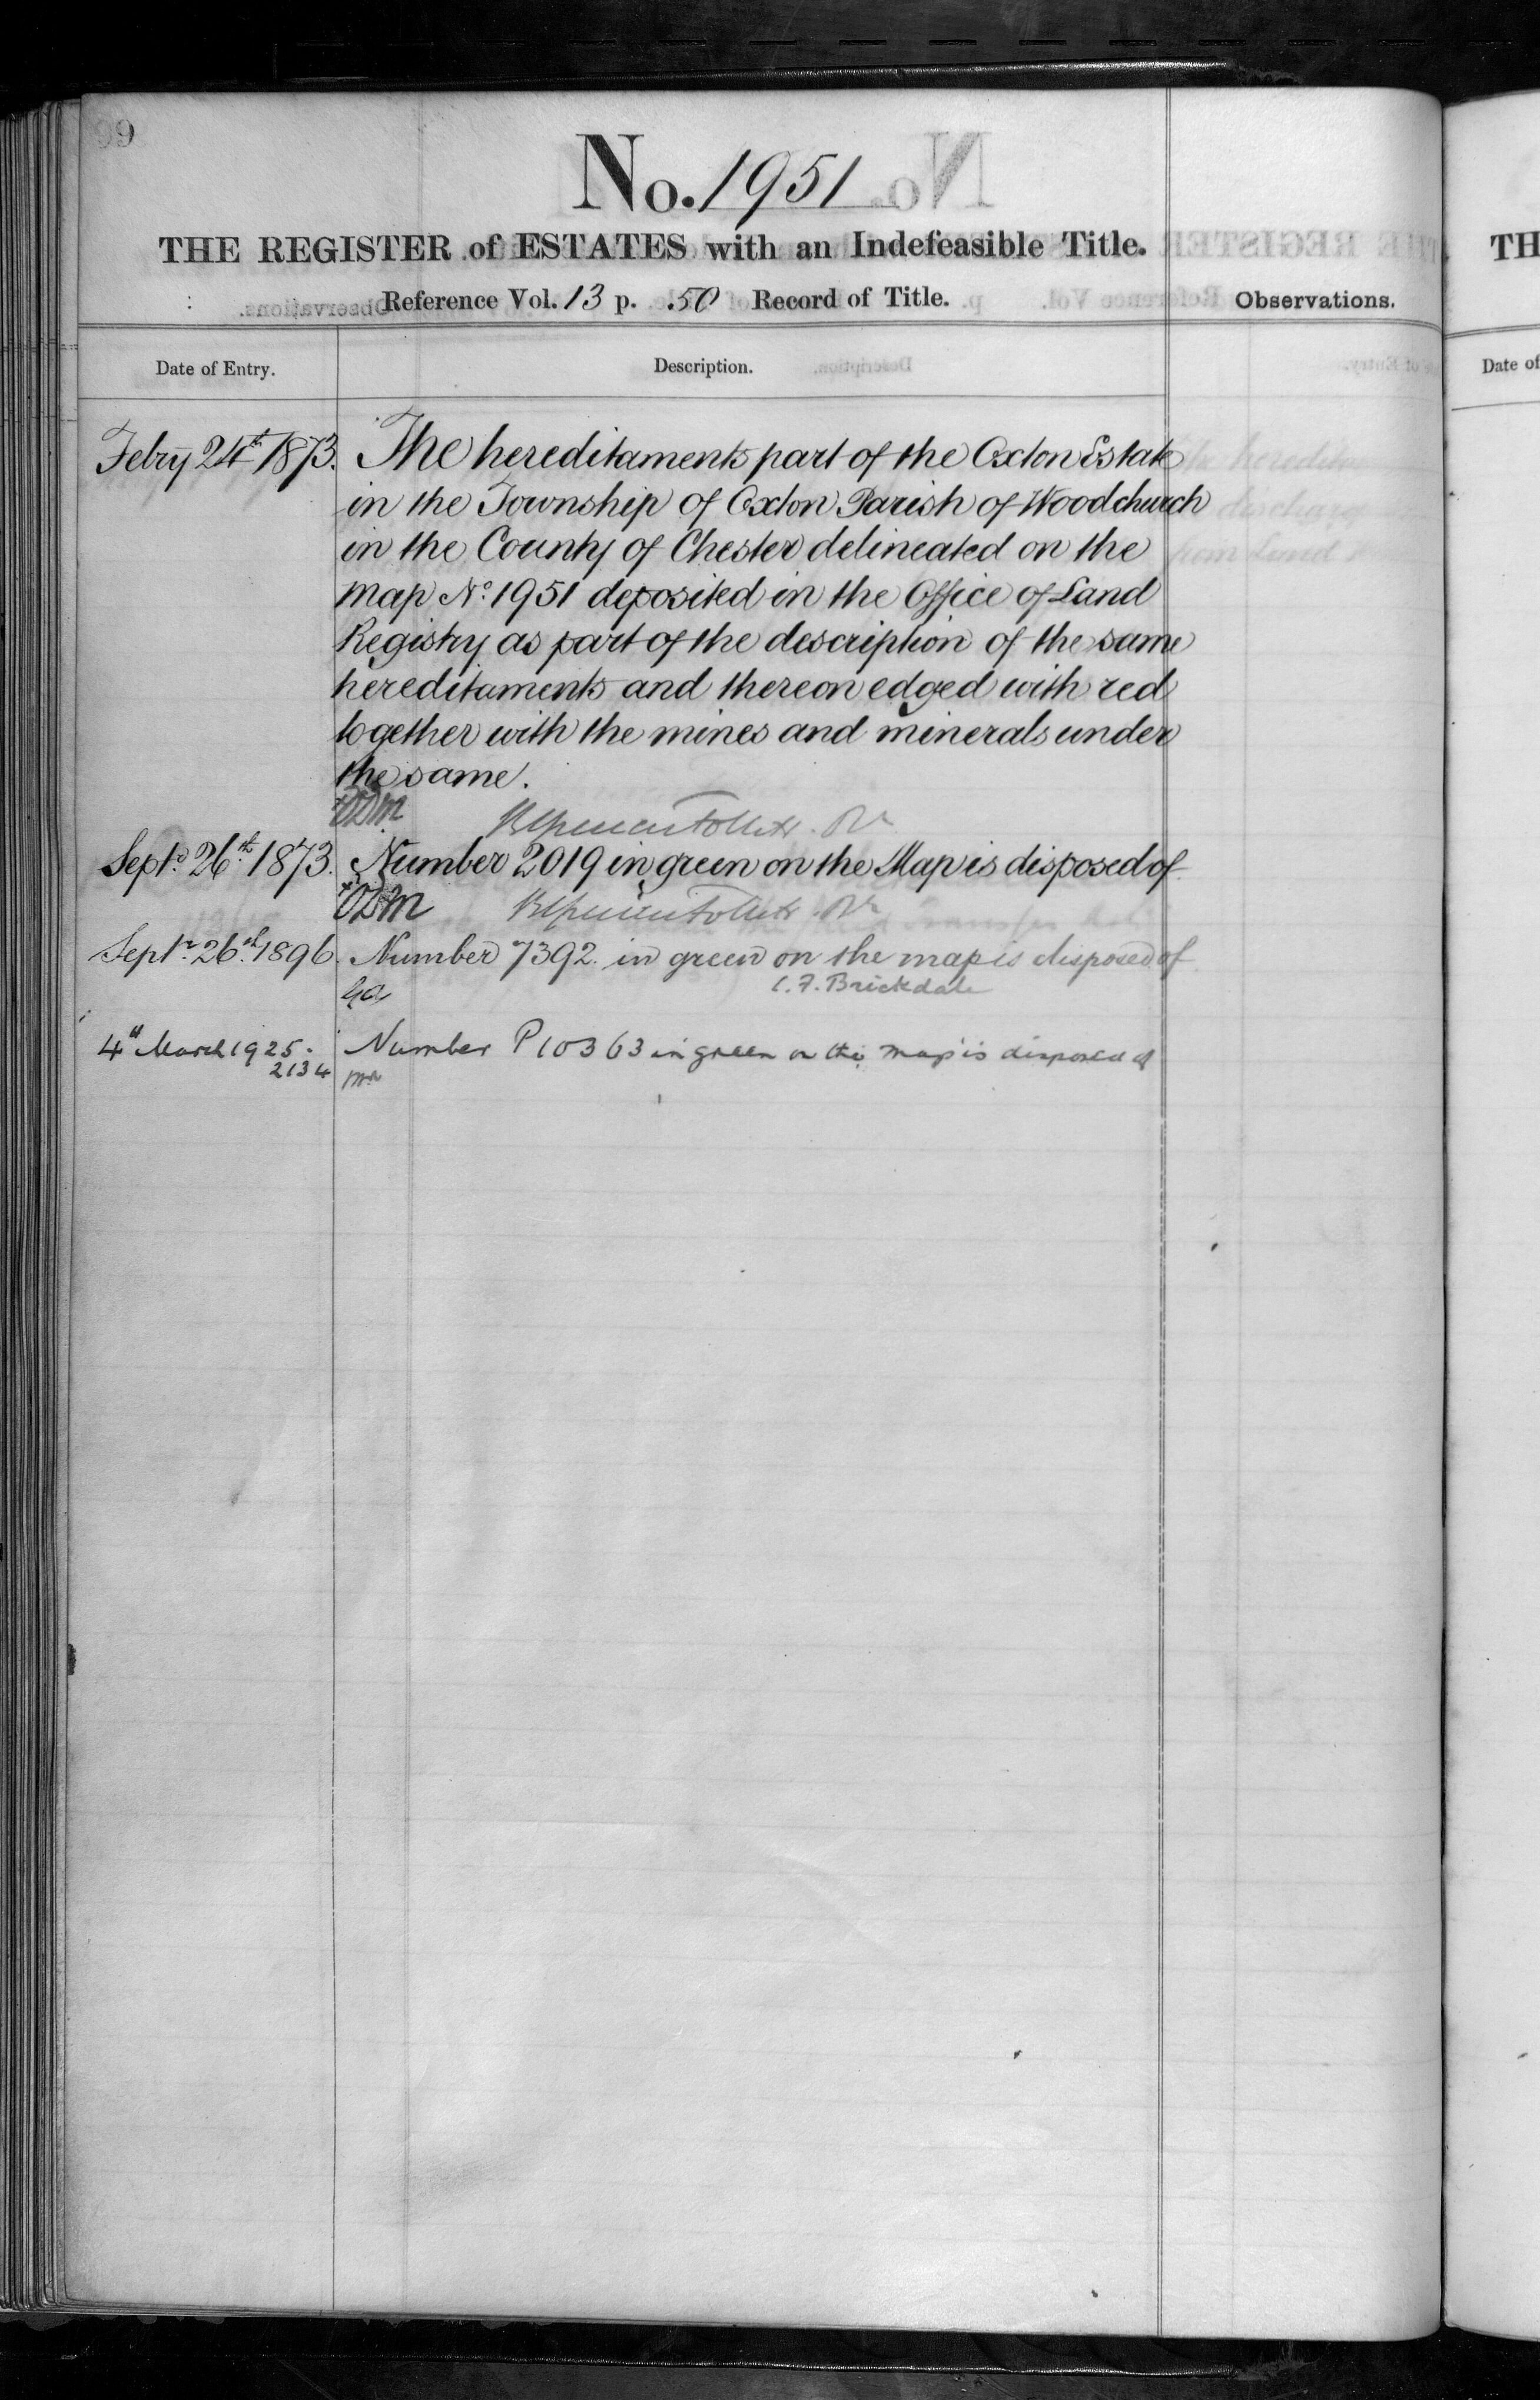 99
No. 1951
THE REGISTER of ESTATES with an Indefeasible Title.
Reference Vol. 13 p. 50 Record of Title.
Observations.
Date of Entry.
Description.
Febry 24th 1873. The hereditaments part of the Oxton Estate
in the Township of Oxton Parish of Woodchurch
in the County of Chester delineated on the
map No. 1951 deposited in the Office of Land
Registry as part of the description of the same
hereditaments and thereon edged with red
together with the mines and minerals under
the same.
Brent Follett. Rr
Septr. 26th. 1873. Number 2019 in green on the Map is disposed of
Brent Follett. Rr
Septr. 26th. 1896. Number 7392. in green on the map is disposed of
C. F. Brickdale
4th March 1925. Number P10363 in green on the map is disposed of
2134
TH
Date of